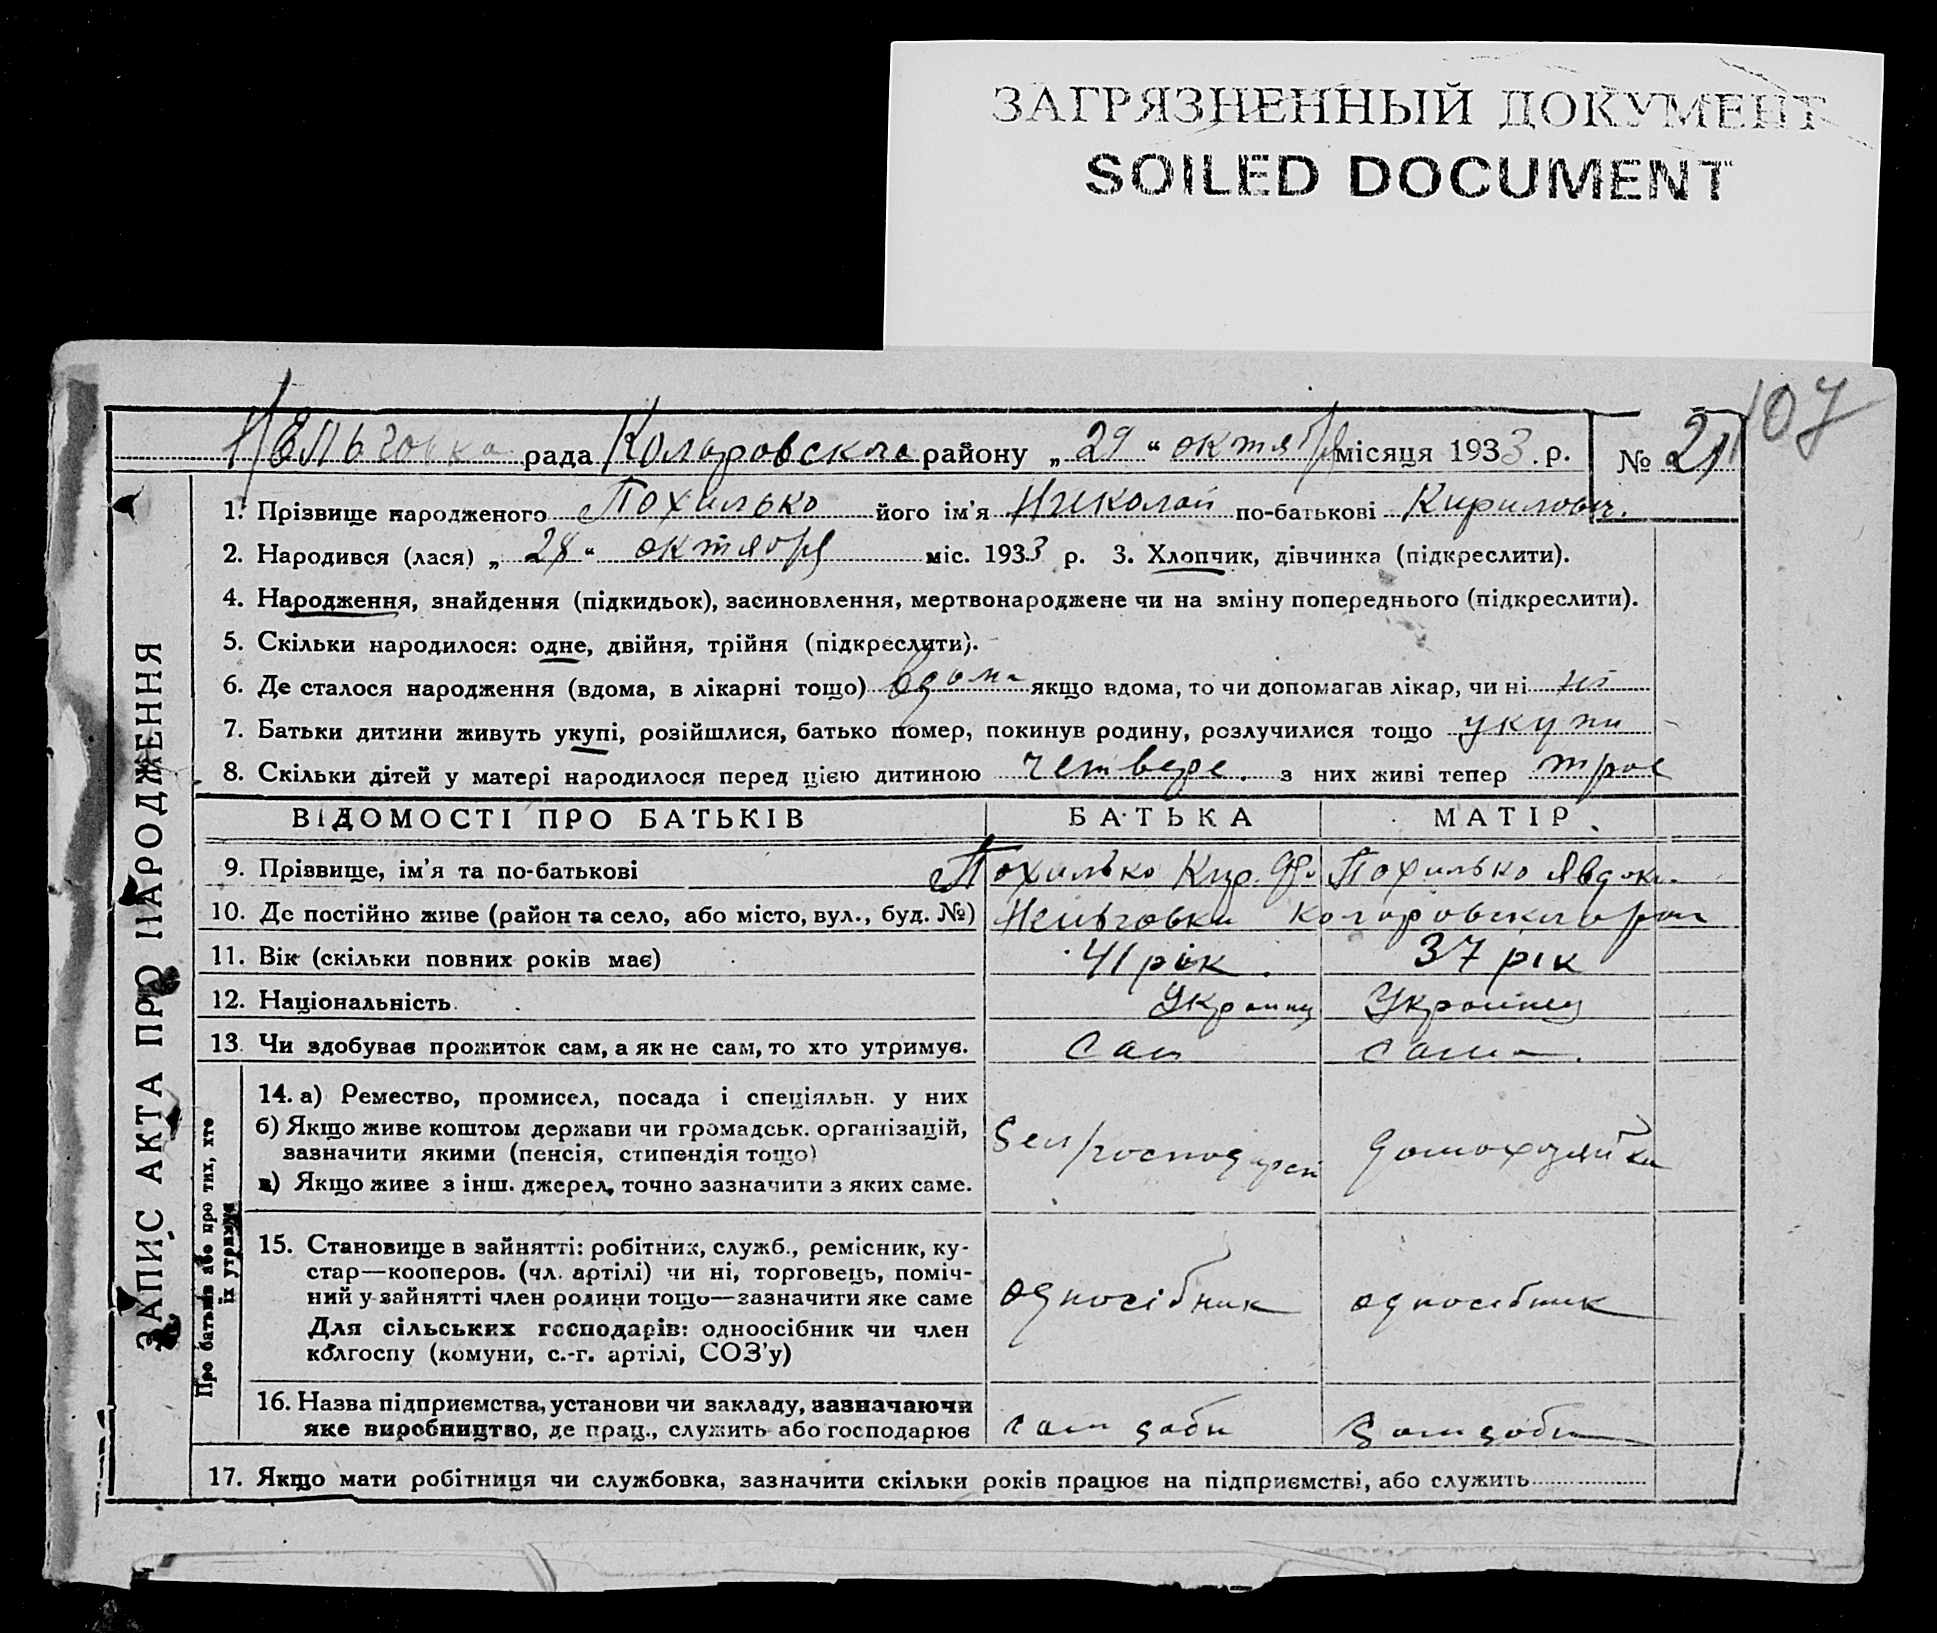 ЗАГРЯЗНЕННЫЙ ДОКУМЕНТ
SOILED DOCUMENT
107
Нельговка рада Коларовского району „29“ октября місяця 1933 р. № 21
ЗАПИС АКТА ПРО НАРОДЖЕННЯ
1. Прізвище народженого Похилько його ім'я Николай по-батькові Кирилович.
2. Народився (лася) „28“ октября міс. 1933 р. 3. Хлопчик, дівчинка (підкреслити).
4. Народження, знайдення (підкидьок), засиновлення, мертвонароджене чи на зміну попереднього (підкреслити).
5. Скільки народилося: одне, двійня, трійня (підкреслити).
6. Де сталося народження (вдома, в лікарні тощо) вдома якщо вдома, то чи допомагав лікар, чи ні ні
7. Батьки дитини живуть укупі, розійшлися, батько помер, покинув родину, розлучилися тощо укупи
8. Скільки дітей у матері народилося перед цією дитиною четверо. з них живі тепер трое
ВІДОМОСТІ ПРО БАТЬКІВ БАТЬКА МАТІР
9. Прізвище, ім'я та по-батькові Похилько Кир. Похилько Явдок.
10. Де постійно живе (район та село, або місто, вул., буд. №) Нельговка Коларовского район
11. Вік (скільки повних років має) 41 рік. 37 рік
12. Національність Украинец Украинец
13. Чи здобував прожиток сам, а як не сам, то хто утримує. Сам сама.
Про батьків або про тих, хто
їх утримує
14. а) Ремество, промисел, посада і спеціяльн. у них
б) Якщо живе коштом держави чи громадськ. організацій,
зазначити якими (пенсія, стипендія тощо)
в) Якщо живе з інш. джерел, точно зазначити з яких саме.
домохозяйка
15. Становище в зайнятті: робітник, служб., ремісник, ку-
стар—кооперов. (чл. артілі) чи ні, торговець, поміч-
ний у зайнятті член родини тощо—зазначити яке саме
Для сільських господарів: одноосібник чи член
колгоспу (комуни, с.-г. артілі, СОЗ'у)
односібник односібник
16. Назва підприємства, установи чи закладу, зазначаючи
яке виробництво, де прац., служить або господарює
17. Якщо мати робітниця чи службовка, зазначити скільки років працює на підприємстві, або служить